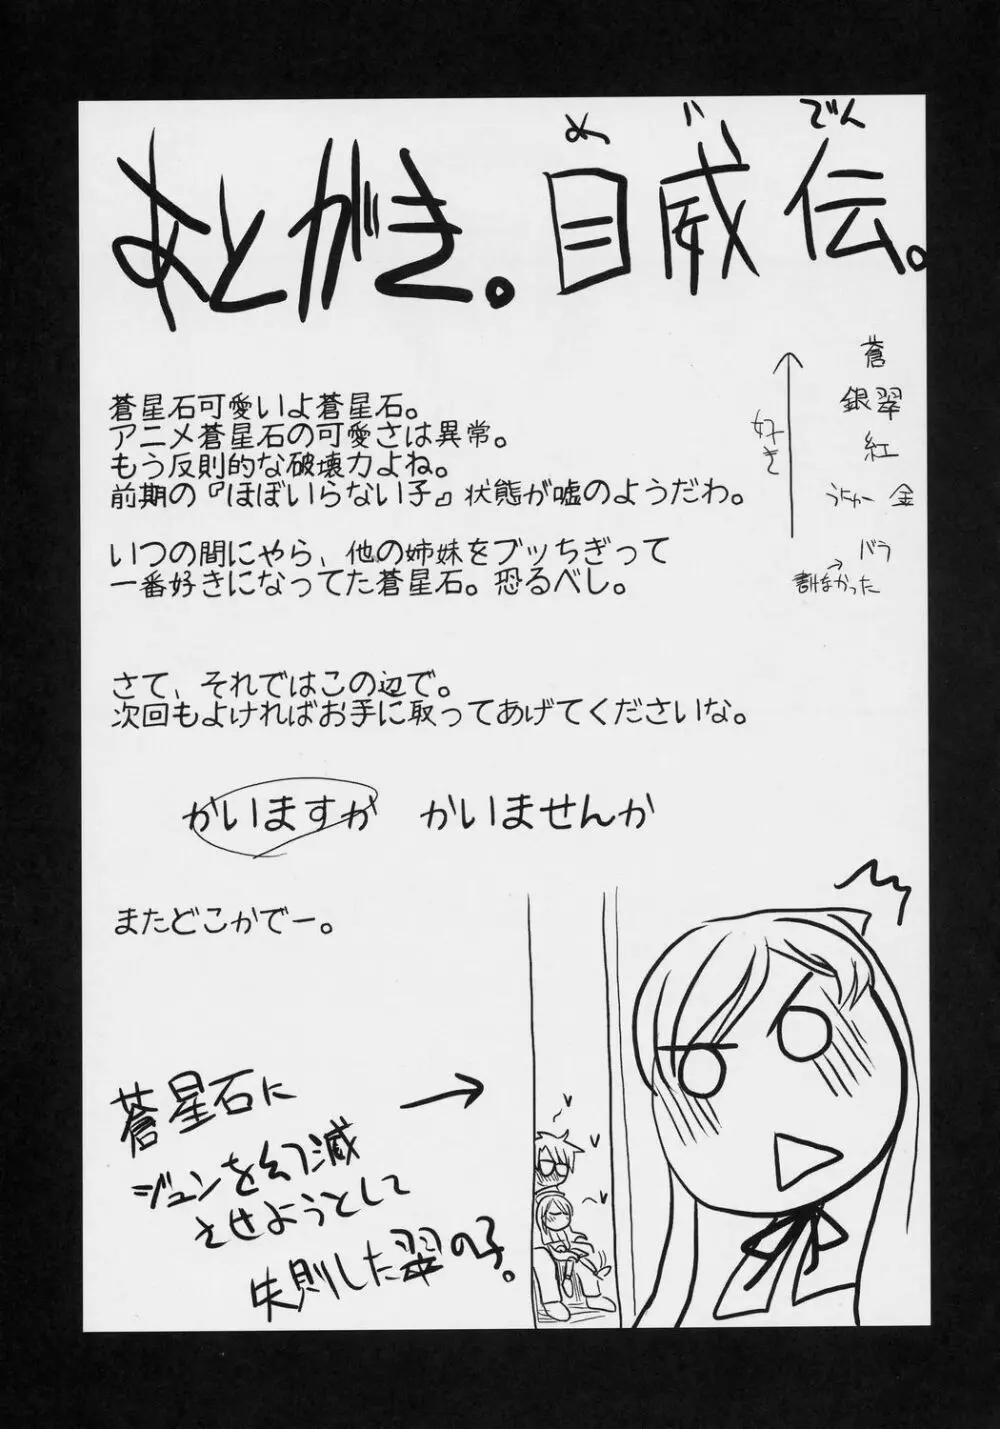 めいでん
あとがき。目威伝。
蒼星石可愛いよ蒼星石。
アニメ蒼星石の可愛さは異常。
もう反則的な破壊力よね。
前期の『ほぼいらない子』状態が嘘のようだわ。
いつの間にやら、他の姉妹をブッちぎって
一番好きになってた蒼星石。恐るべし。
好き
蒼
銀翠
紅
うにゅー 金
バラ
書けなかった
さて、それではこの辺で。
次回もよければお手に取ってあげてくださいな。
かいますか かいませんか
またどこかでー。
蒼星石に
ジュンを幻滅
させようとして
失則した翠の子。